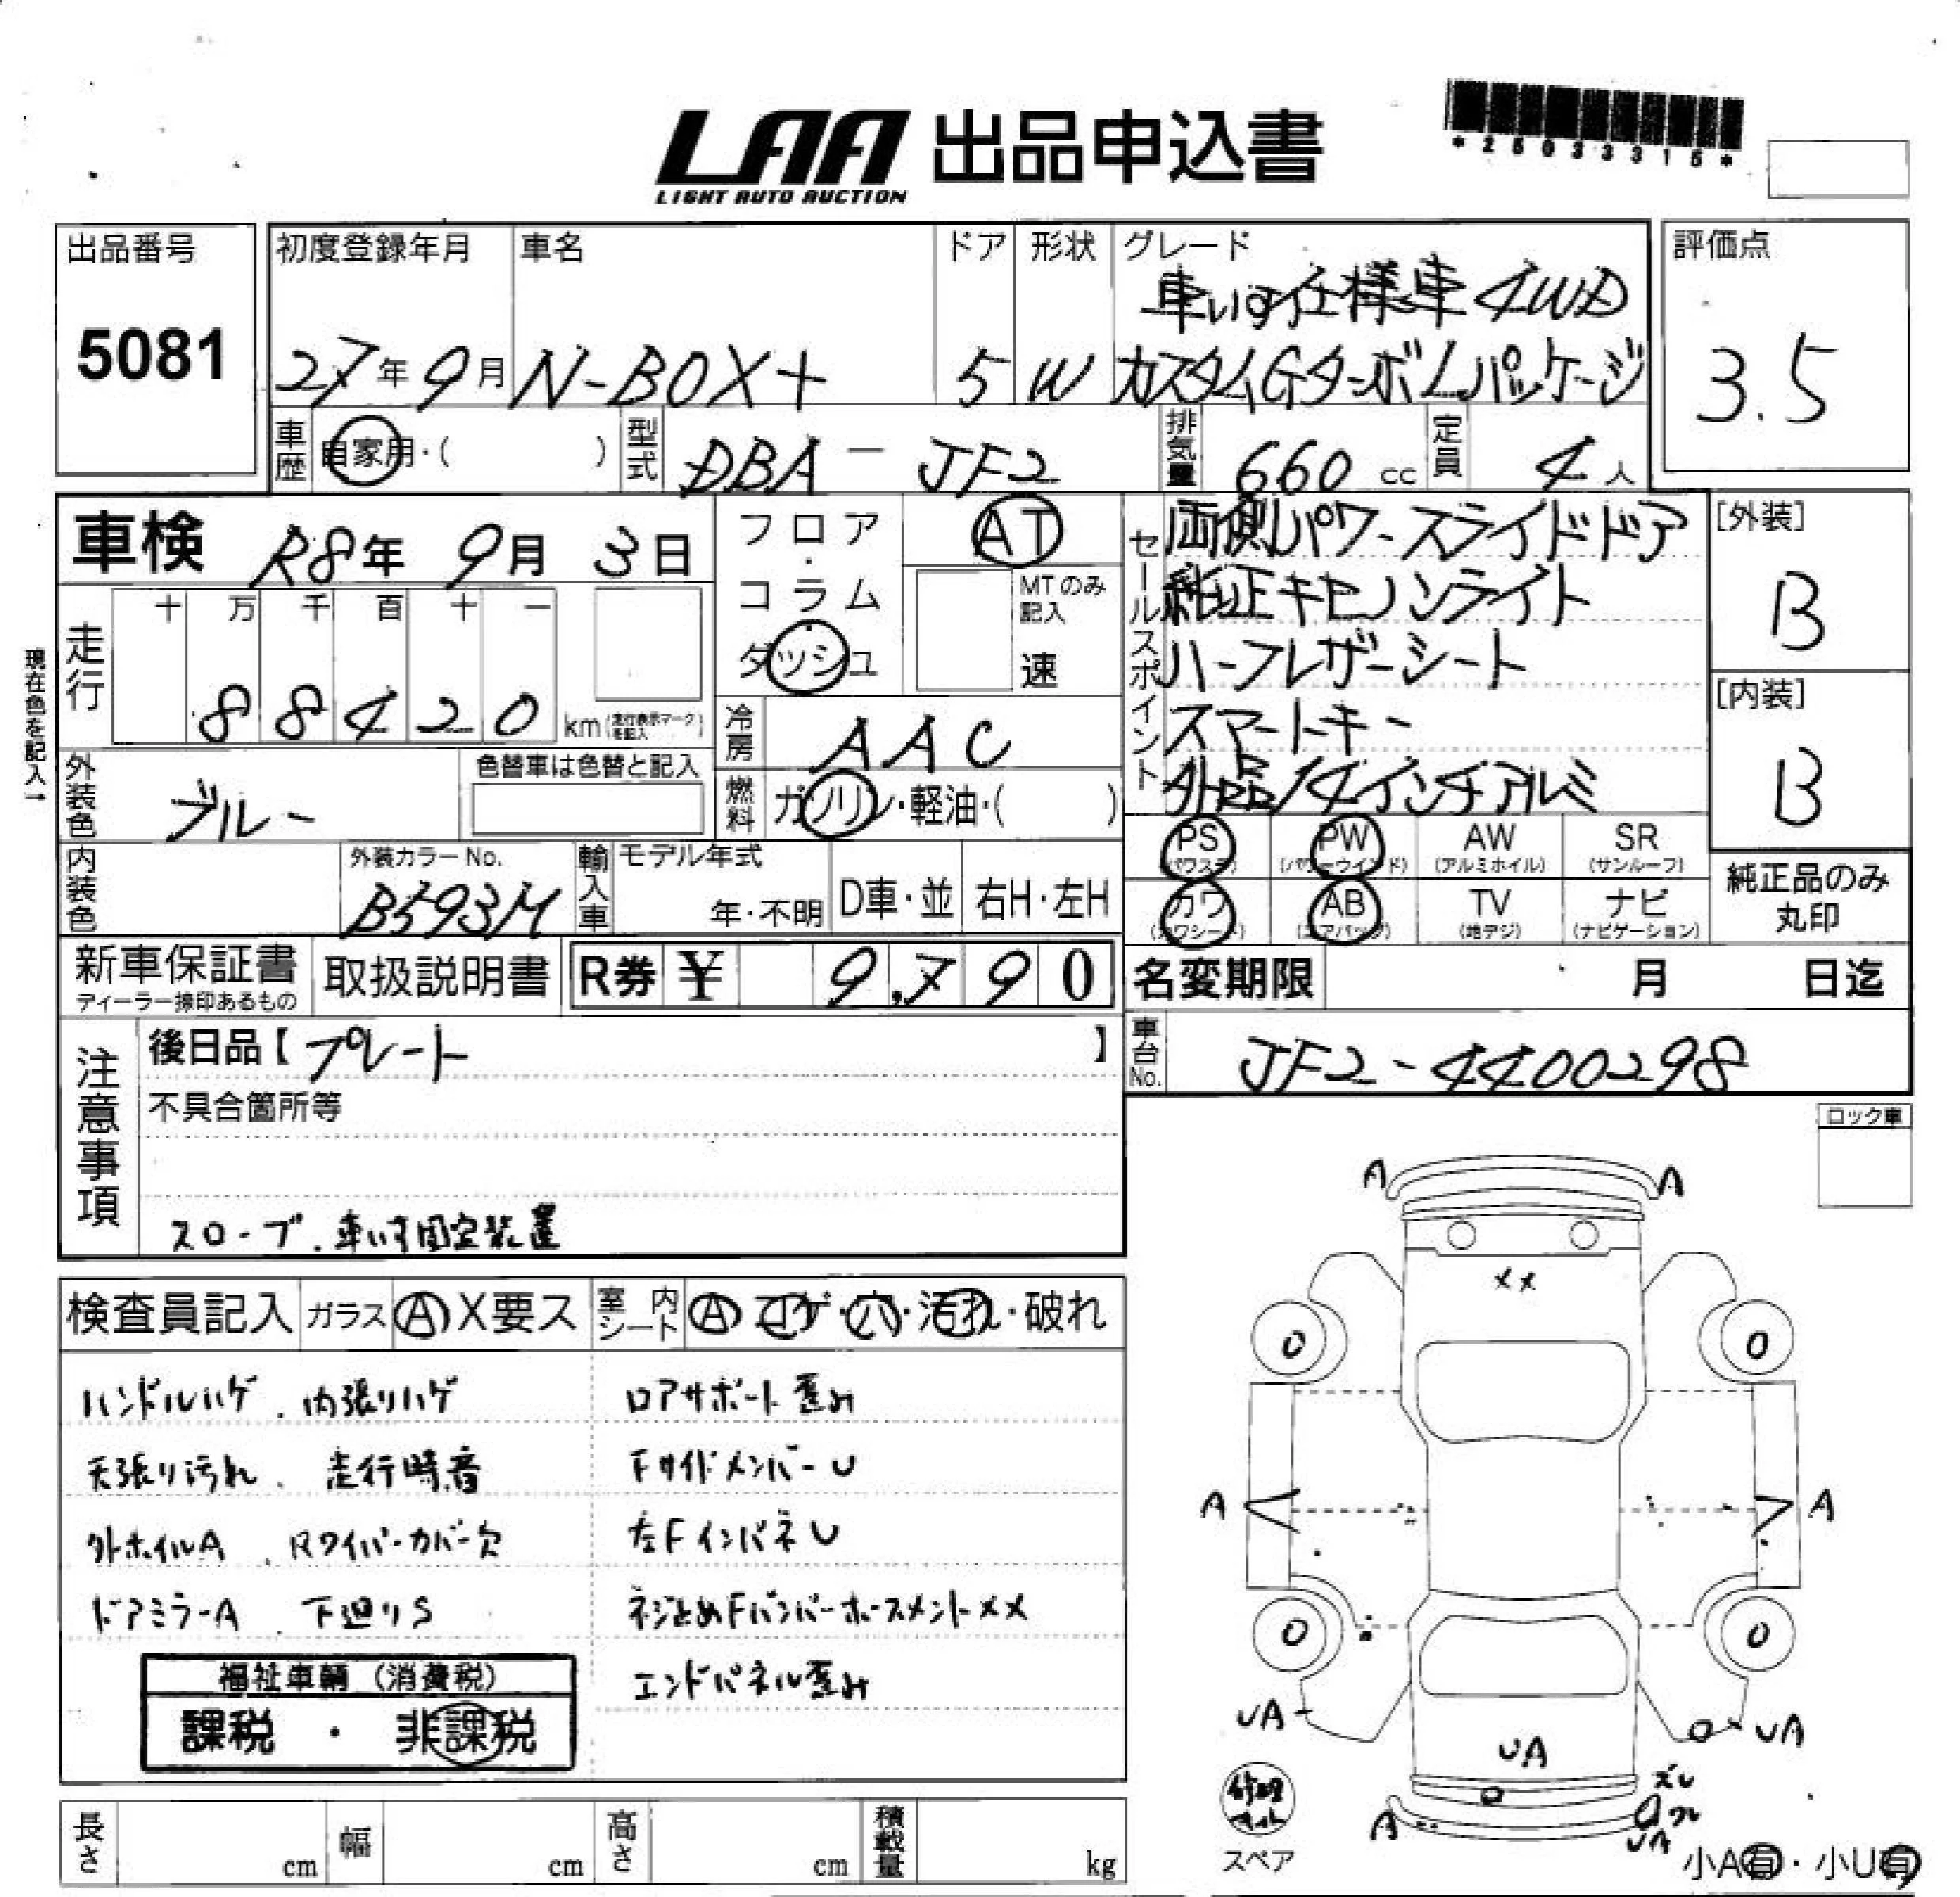 LAA 出品申込書
LIGHT AUTO AUCTION
*25033315*
出品番号
5081
初度登録年月
27年9月
車名
N-BOX+
ドア
5
形状
W
グレード
車いす仕様車 4WD
カスタムGターボLパッケージ
評価点
3.5
車歴
自家用・( )
型式
DBA-JF2
排気量
660 cc
定員
4人
車検 R8年 9月 3日
現在色を記入→
走行
十 万 千 百 十 一
8 8 4 2 0 km(走行表示マークを記入)
フロア・コラム・ダッシュ
AT
MTのみ記入
速
冷房
AAC
外装色
ブルー
色替車は色替と記入
燃料
ガソリン・軽油・( )
内装色
外装カラーNo.
B593M
輸入車
モデル年式
年・不明
D車・並
右H・左H
セールスポイント
両側パワースライドドア
純正キセノンライト
ハーフレザーシート
スマートキー
外品14インチアルミ
[外装]
B
[内装]
B
PS (パワステ)
PW (パワーウインド)
AW (アルミホイル)
SR (サンルーフ)
カワ (カワシート)
AB (エアバッグ)
TV (地デジ)
ナビ (ナビゲーション)
純正品のみ丸印
新車保証書
ディーラー捺印あるもの
取扱説明書
R券 ¥ 9,790
名変期限 月 日迄
車台No.
JF2-4400298
注意事項
後日品【プレート】
不具合箇所等
スロープ、車いす固定装置
ロック車
検査員記入
ガラス A X要ス
室内シート A コゲ・穴・汚れ・破れ
ハンドルハゲ、内張りハゲ
天張り汚れ、走行時音
外ホイルA、Rワイパーカバー欠
ドアミラーA、下廻りS
ロアサポート歪み
FサイドメンバーU
左FインパネU
ネジとめFバンパーホースメントXX
エンドパネル歪み
福祉車輌(消費税)
課税・非課税
A A
XX
0 0
A A
0 0
UA UA
UA
ズレ
ワレ
A UA
修理キット
スペア
小A有・小U有
長さ cm
幅 cm
高さ cm
積載量 kg